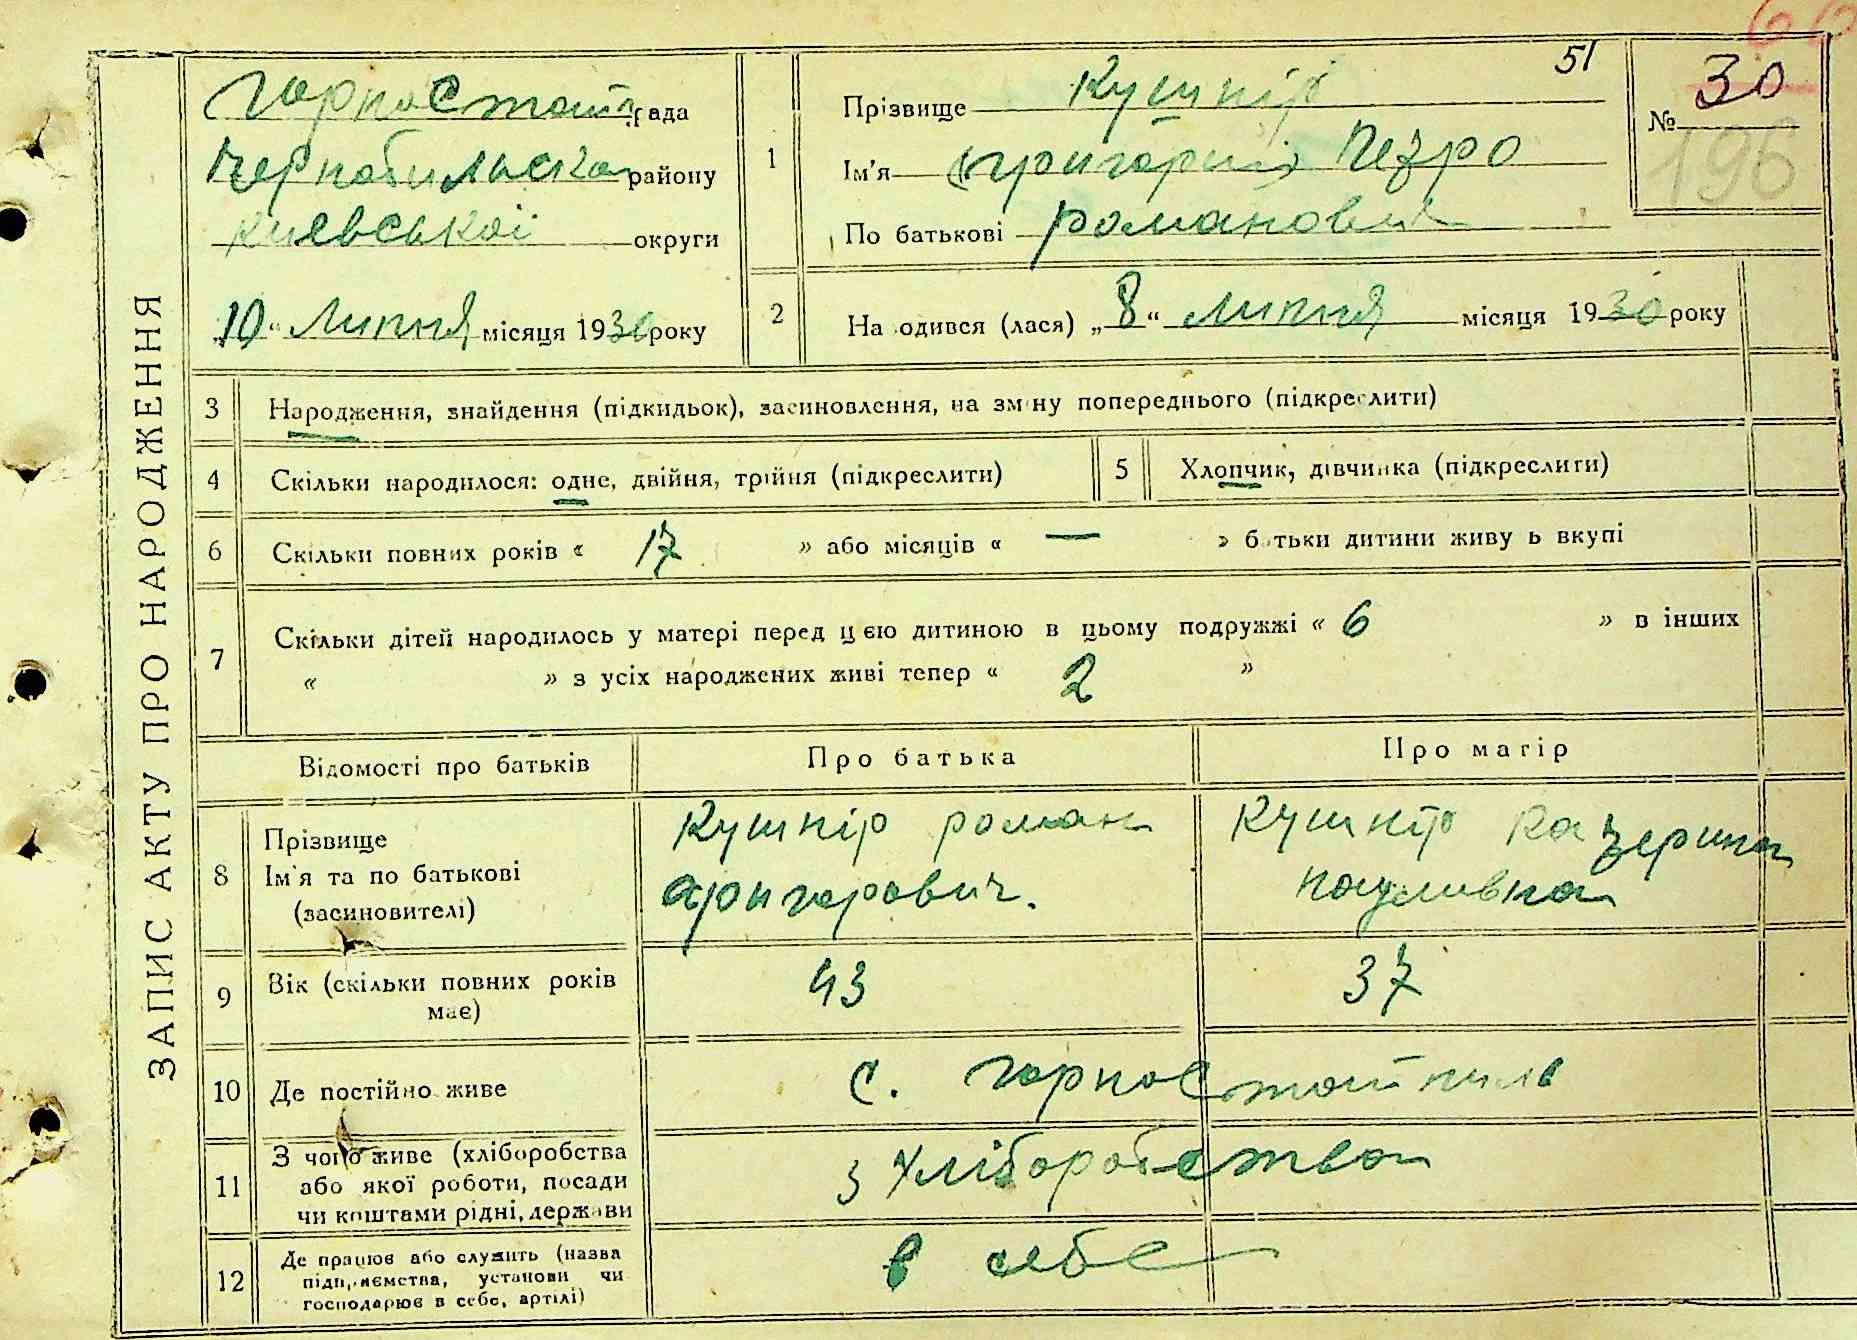 ЗАПИС АКТУ ПРО НАРОДЖЕННЯ
66
51
Горностайп рада
Чернобильська району
Киевської округи
"10" Липня місяця 1930 року
1 Прізвище Кушнір
Ім'я Григорий Петро
По батькові романович
№ 30
196
2 На одився (лася) „8“ липня місяця 1930 року
3 Народження, знайдення (підкидьок), засиновлення, на зміну попереднього (підкреслити)
4 Скільки народилося: одне, двійня, трійня (підкреслити)
5 Хлопчик, дівчинка (підкреслити)
6 Скільки повних років « 17 » або місяців « — » батьки дитини живуть вкупі
7 Скільки дітей народилось у матері перед цією дитиною в цьому подружжі « 6 » в інших
« » з усіх народжених живі тепер « 2 »
Відомості про батьків
Про батька
Про матір
8 Прізвище
Ім'я та по батькові
(засиновителі)
Кушнір роман
Григорович.
Кушнір Катерина
9 Вік (скільки повних років
має)
43
37
10 Де постійно живе
с. Горностайпиль
11 З чого живе (хліборобства
або якої роботи, посади
чи коштами рідні, держави
з хліборобства
12 Де працює або служить (назва
підприємства, установи чи
господарює в себе, артілі)
в себе